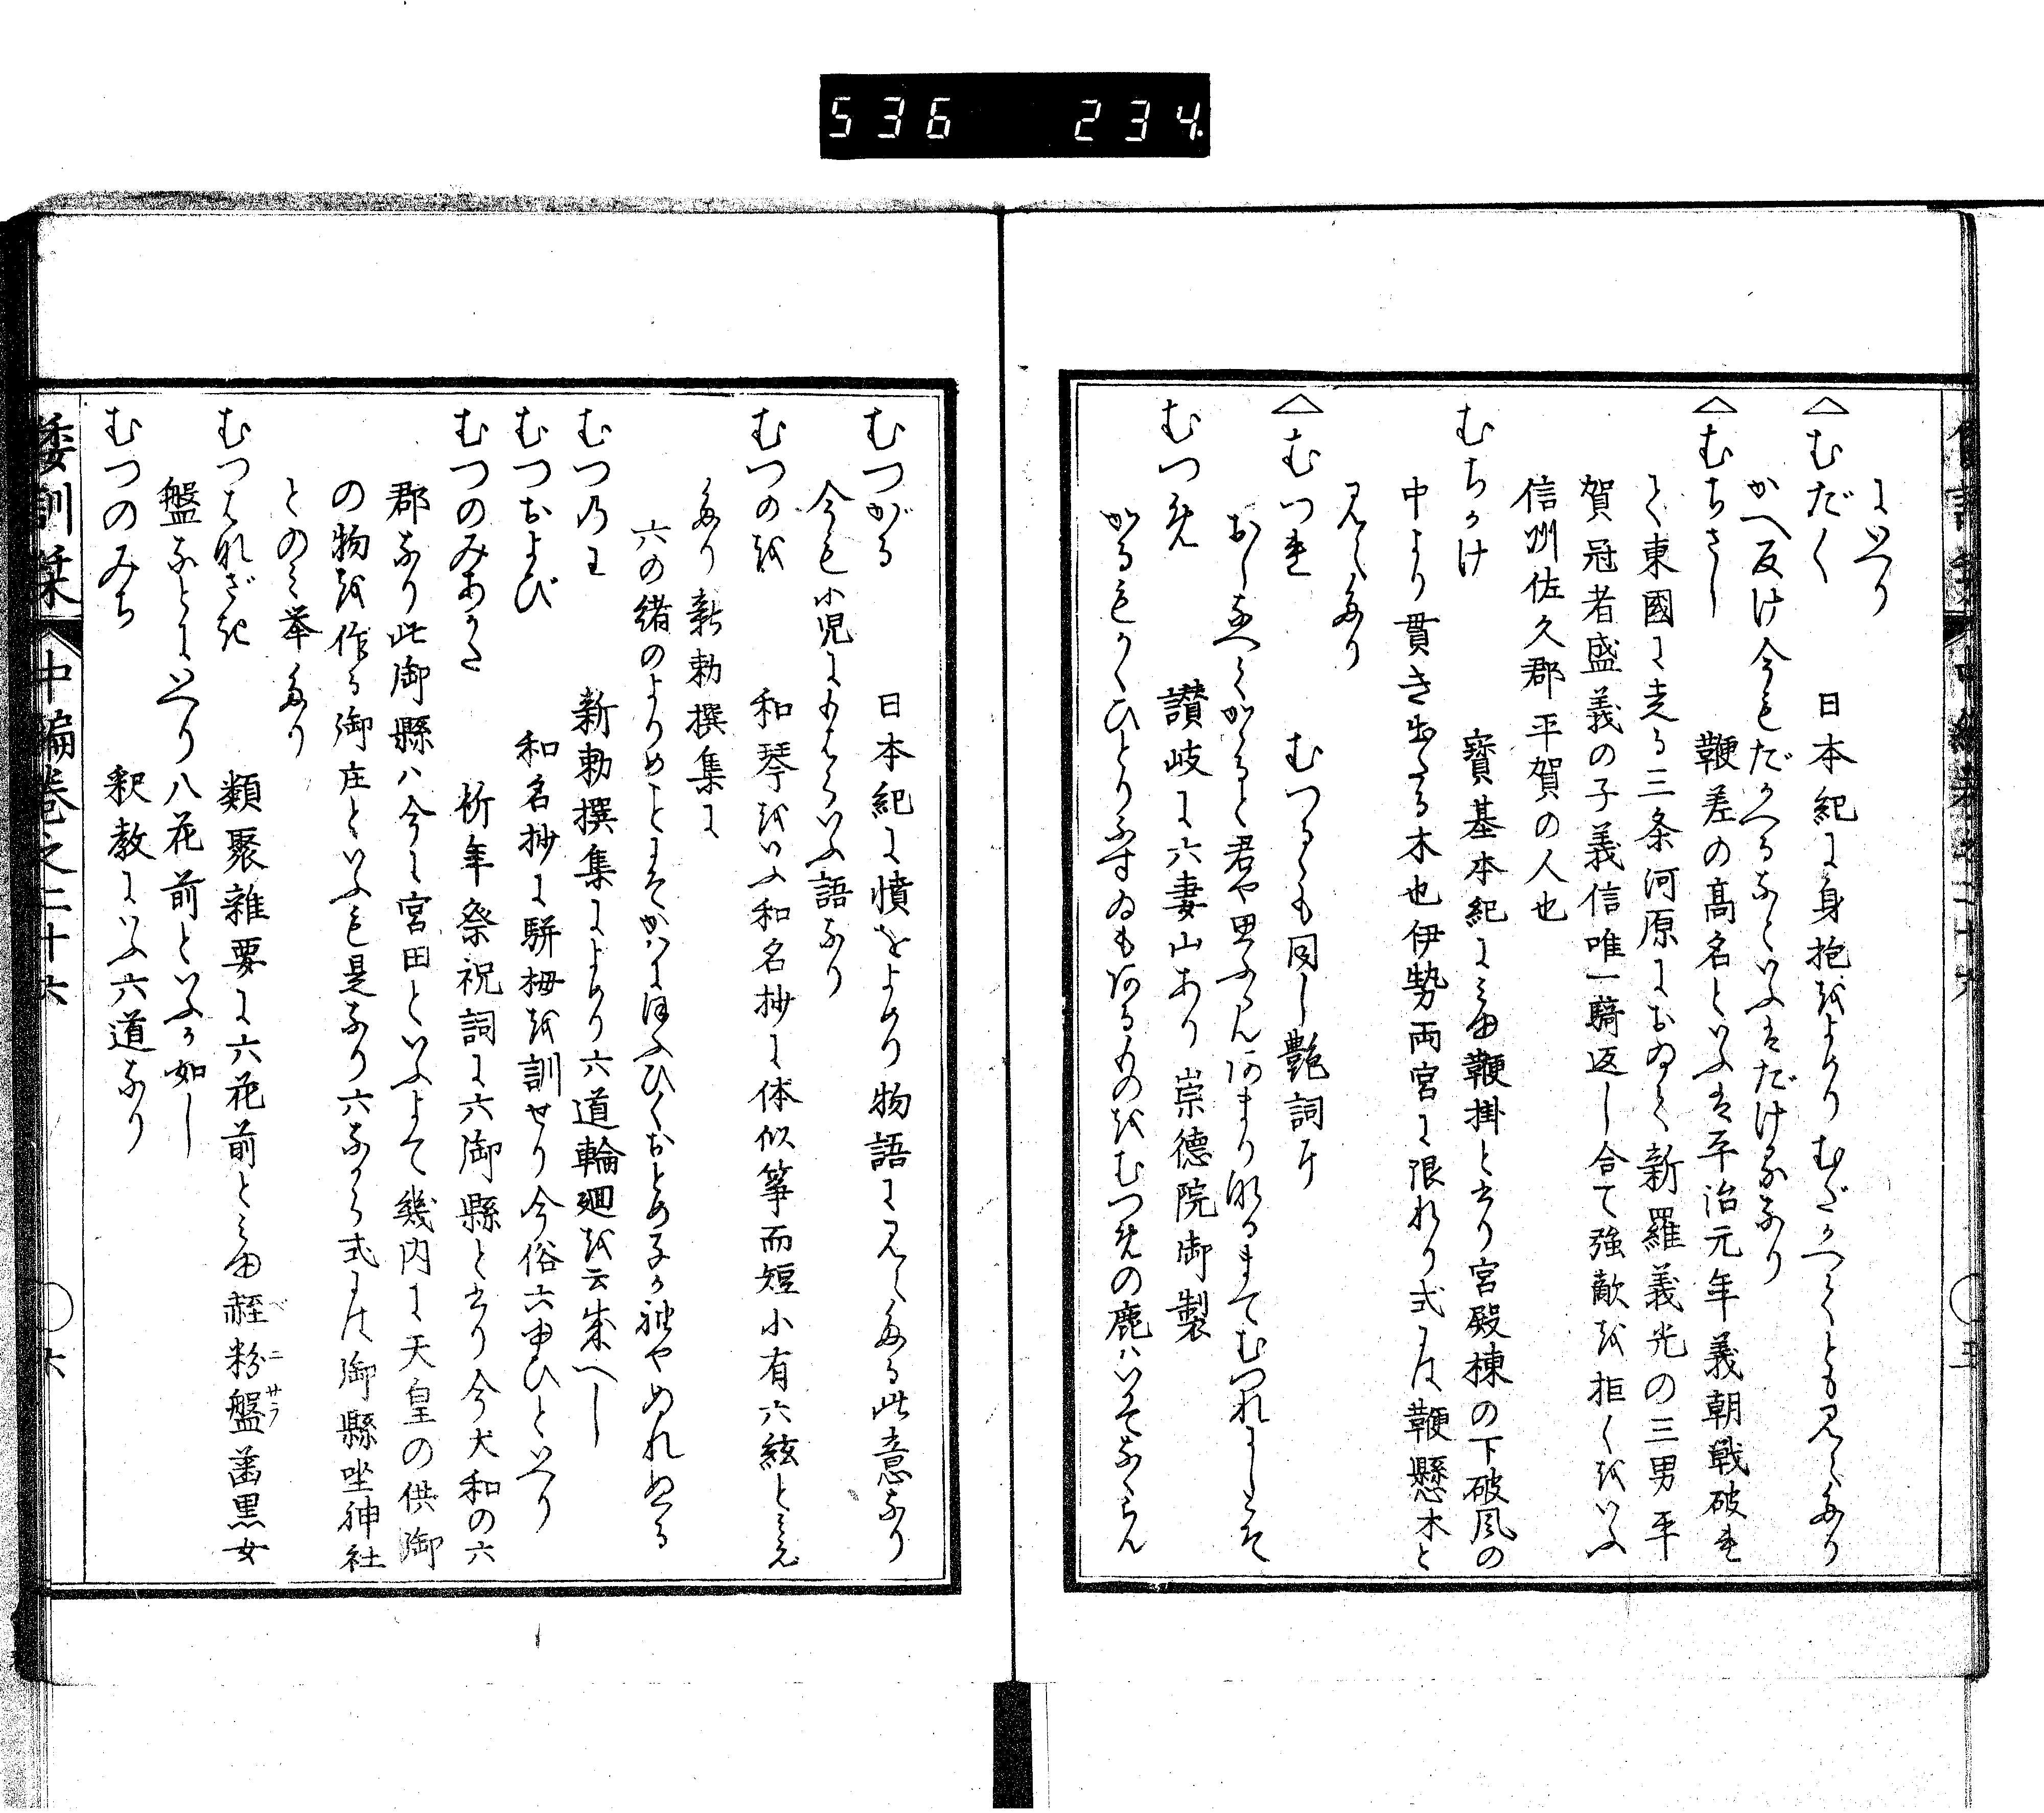 536 234
にいへり
△むだく 日本紀に身抱をよめりむだかへてとも見えたり
かへ反け今もだかへるなといふはだける也なり
△むちさし 鞭差の高名といふは平治元年義朝戦破れ
て東國に走る三条河原において新羅義光の三男平
賀冠者盛義の子義信唯一騎返し合て強敵を拒くをいふ
信州佐久郡平賀の人也
むちかけ 寳基本紀にみゆ鞭掛と云り宮殿棟の下破風の
中より貫き出たる木也伊勢両宮に限れり式には鞭懸木と
見えたり
△むつれ むつるゝも同し艶詞に
おしなへてかゝると君や思ふらんあまりなるまてむつれにしこそ
むつめ 讃岐に六妻山あり崇徳院御製
かるもかくひとりふすゐもあるものをむつめの鹿はいそなくらん
むつがる 日本紀に憤をよめり物語に見えたる此意なり
今も小児にむつはらいふ語なり
むつの緒 和琴をいふ和名抄に体似箏而短小有六絃とみえ
たり新勅撰集に
六の緒のよりめことにそかはにほふひくおとめ子か袖やぬれぬる
むつのわ 新勅撰集によめり六道輪廻を云成へし
むつおよび 和名抄に駢拇を訓せり今俗六ゆひといへり
むつのみあがた 祈年祭祝詞に六御縣と云り今大和の六
郡なり此御縣ハ今に宮田といふよて幾内に天皇の供御
の物を作る御庄といふも是なり六なから式には御縣坐神社
とのミ挙たり
むつはなざき 類聚雜要に六花前とみゆ赬粉盤歯黒女
盤なとにいへり八花前といふか如し
むつのみち 釈教にいふ六道なり
倭訓栞 中編巻之二十六 ○六